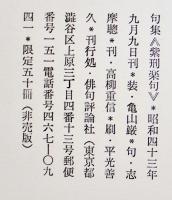 句集《紫刑楽句》＊昭和四十三年
九月九日刊＊装・亀山巌＊句・志
摩聰＊刊・高柳重信＊刷・平光善
久＊刊行処・俳句評論社（東京都
澁谷区上原三丁目四番十三号郵便
番号一五一電話番号四六七ー〇九
四一＊限定五十冊（非売版）